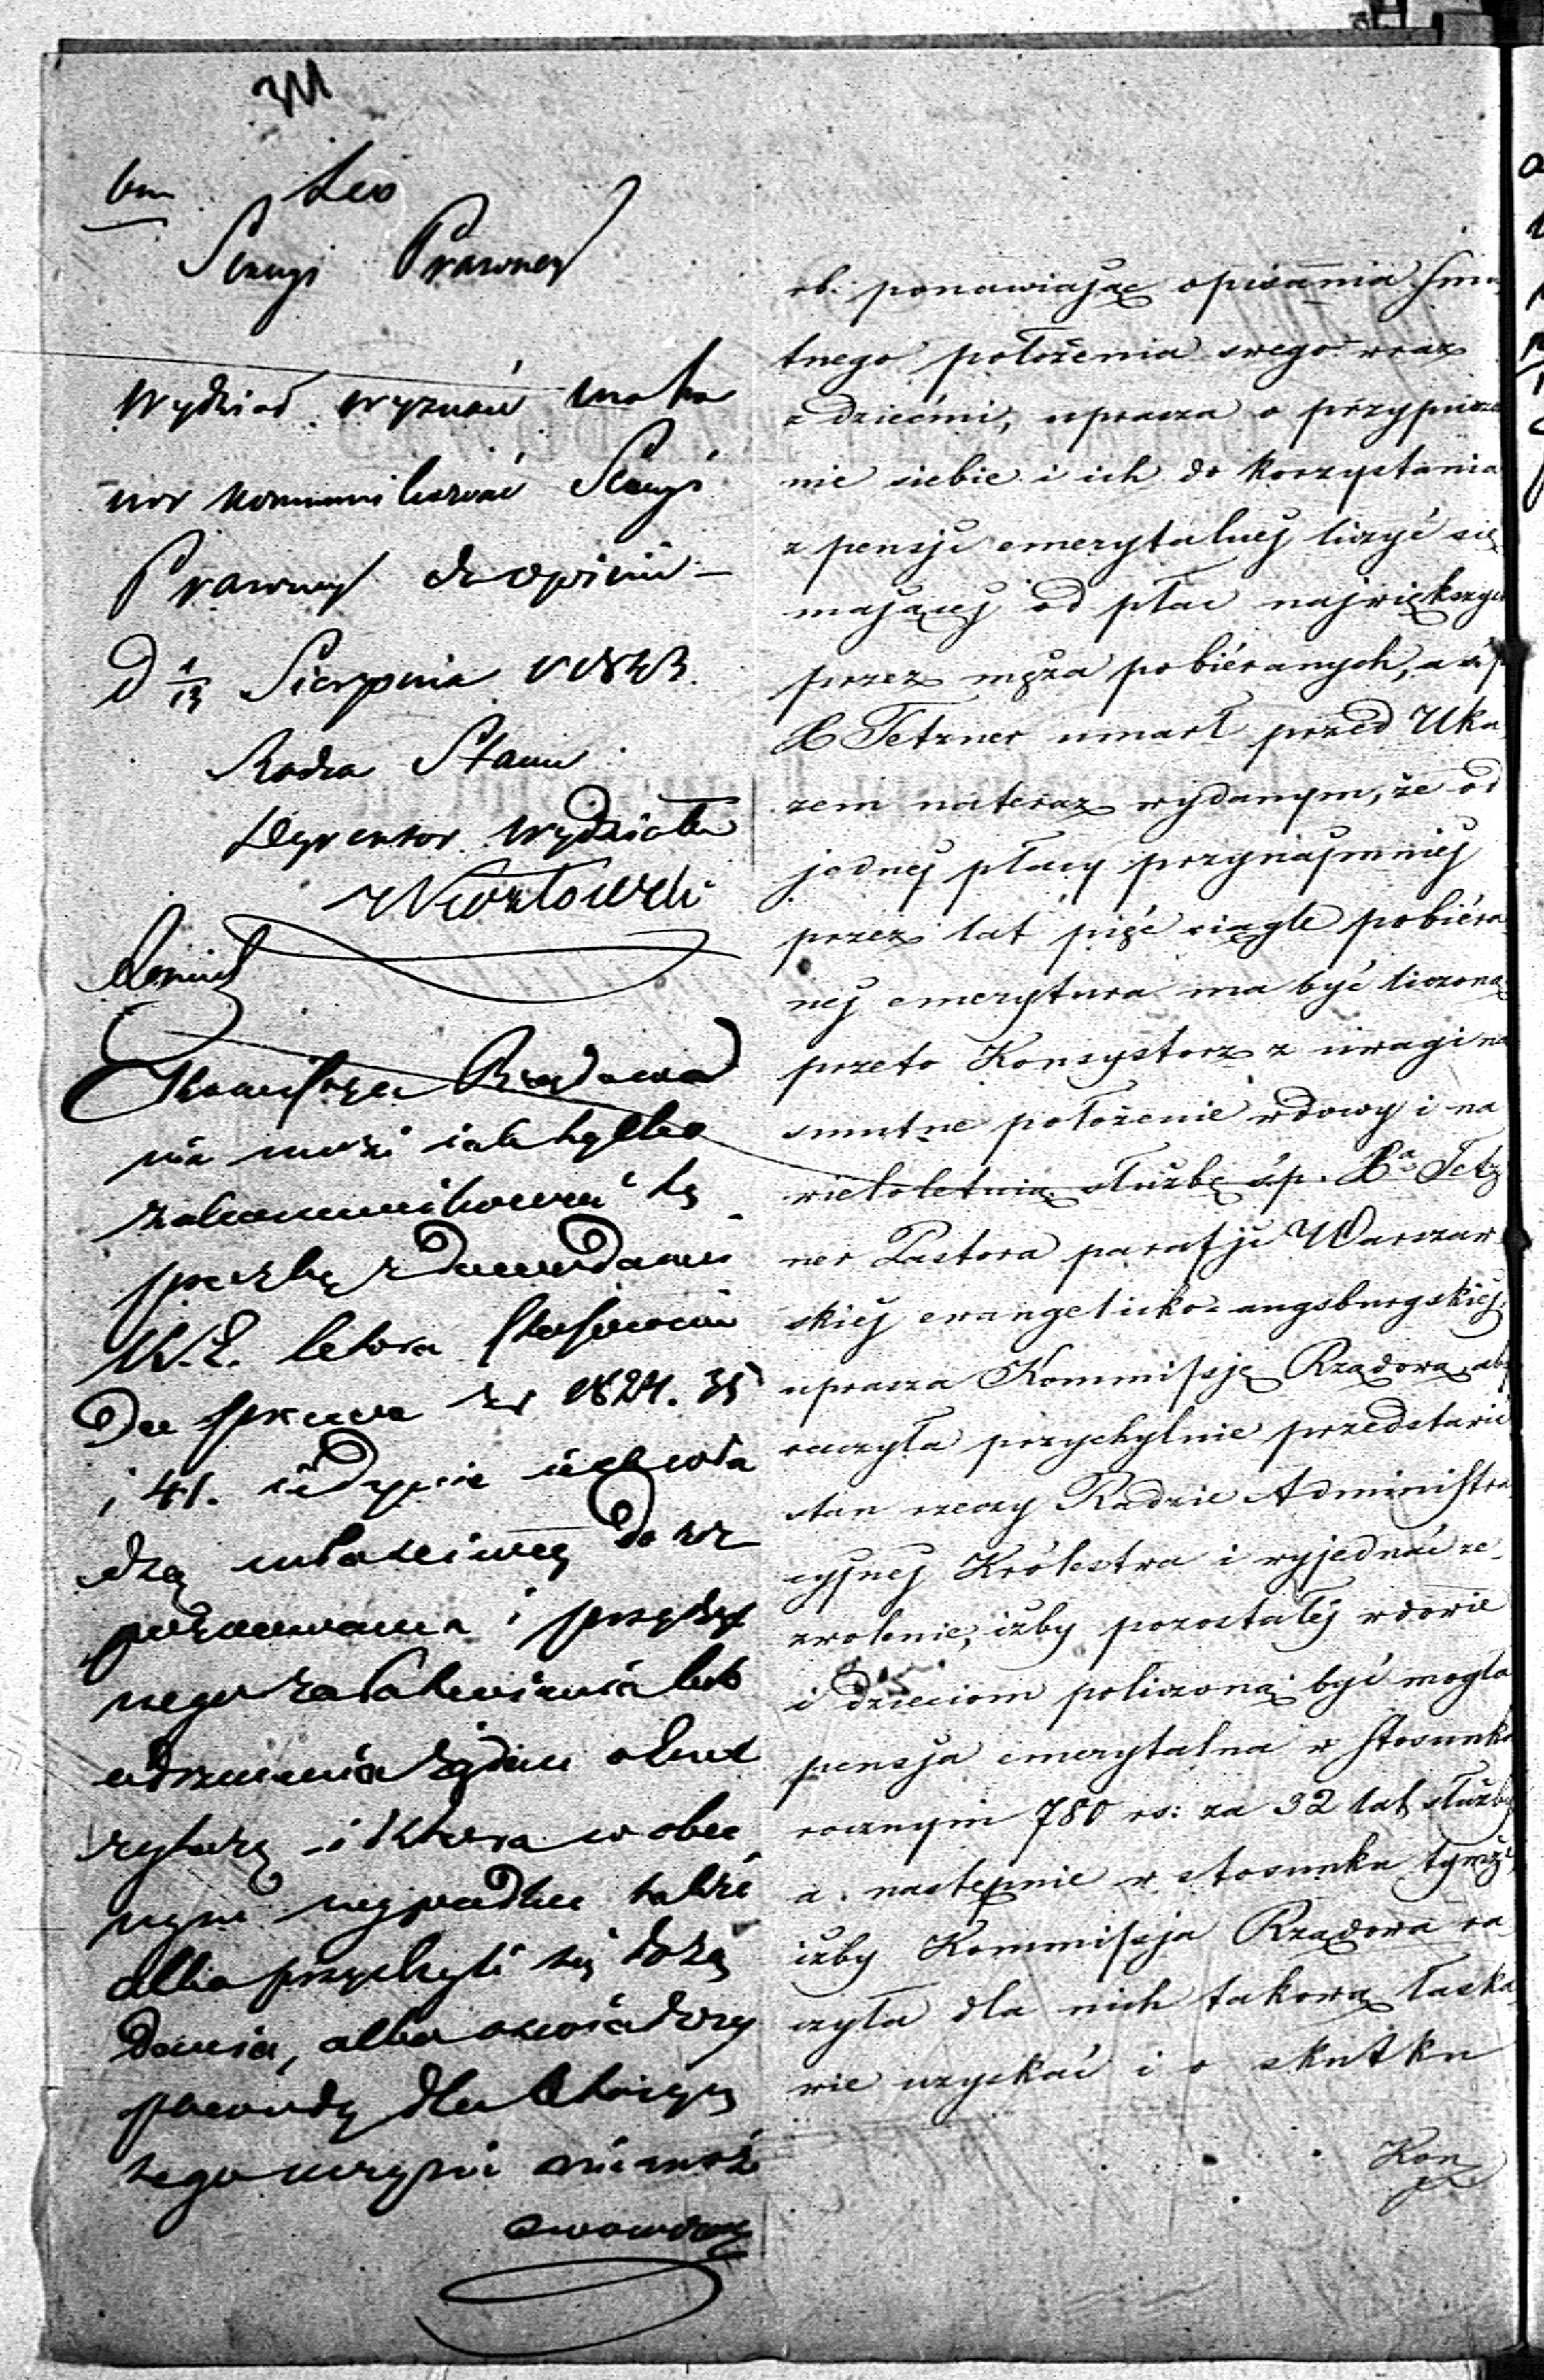 Sekcyi Prawney
Wydział wyznań ma ho
nor kommunikować Sekcyi
Prawney do opinii –
D 1/13 Sierpnia 1843.
Radca Stanu
Dyrektor Wydziału
Kommissya Rządowa
nie może jak tylko
zakommunikować tę
prośbę z dowodami
K.E. która stosownie
Do prawa z r 1824. 35
i 41. jedynie jest wła
dzą właściwą do roz
poznawania i przychyl
nego załatwienia lub
odrzucenia żądań o eme
ryturę – i która w obec
nym wypadku także
albo przychyli się do żą
dania, albo oświadczy
powody dla których
tego uczynić nie może
rb. ponawiając opisania smu
tnego położenia swego wraz
z dziećmi, uprasza o przypuszcze
nie siebie i ich do korzystania
z pensji emerytalnej liczyć się
mającej od płac największych
przez męża pobiéranych, a iż
X Tetzner umarł przed Uka
zem nateraz wydanym, że od
jednej płacy przynajmniej
przez lat pięć ciągle pobiéra
nej emerytura ma być liczoną
przeto Konsystorz z uwagi na
smutne położenie wdowy i na
wieloletnią służbę ś.p. Xa Tetz
ner Pastora parafji Warszaw
skiej ewangelicko-augsburgskiej,
uprasza Kommissję Rządową aby
raczyła przychylnie przedstawić
stan rzeczy Radzie Administra
cyjnej Królestwa i wyjednać ze-
zwolenie, iżby pozostałej wdowie
i dzieciom policzoną być mogła
pensja emerytalna w stosunku
rocznym 780 rs: za 32 lat służby
a następnie w stosunku tymże
iżby Kommissja Rządowa ra
czyła dla nich takową łaska
wie uzyskać i o skutku
Kon